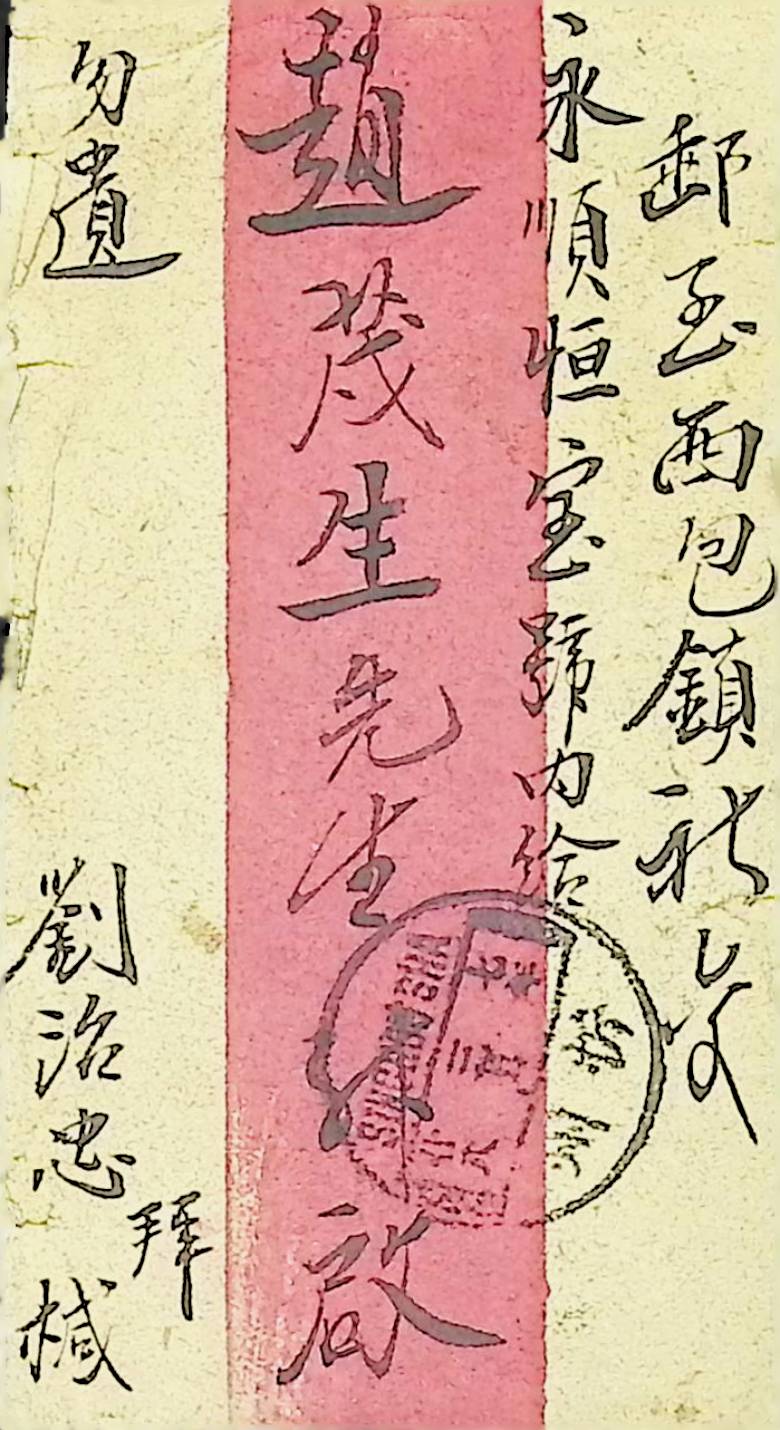 郵至西包鎮社交
永順恒宝號內給
趙茂生先生 啟
勿遺
劉治忠 拜
椷